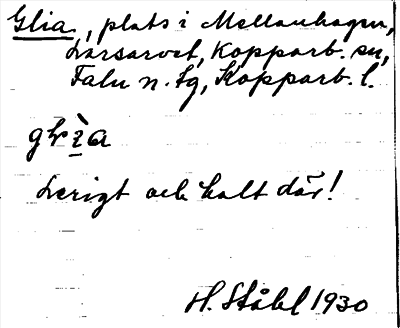 Glia, plats i Mellanhagen,
Larsarvet, Kopparb. sn,
Falu n. tg, Kopparb. l.
Lerigt och halt där!
H. Ståhl 1930